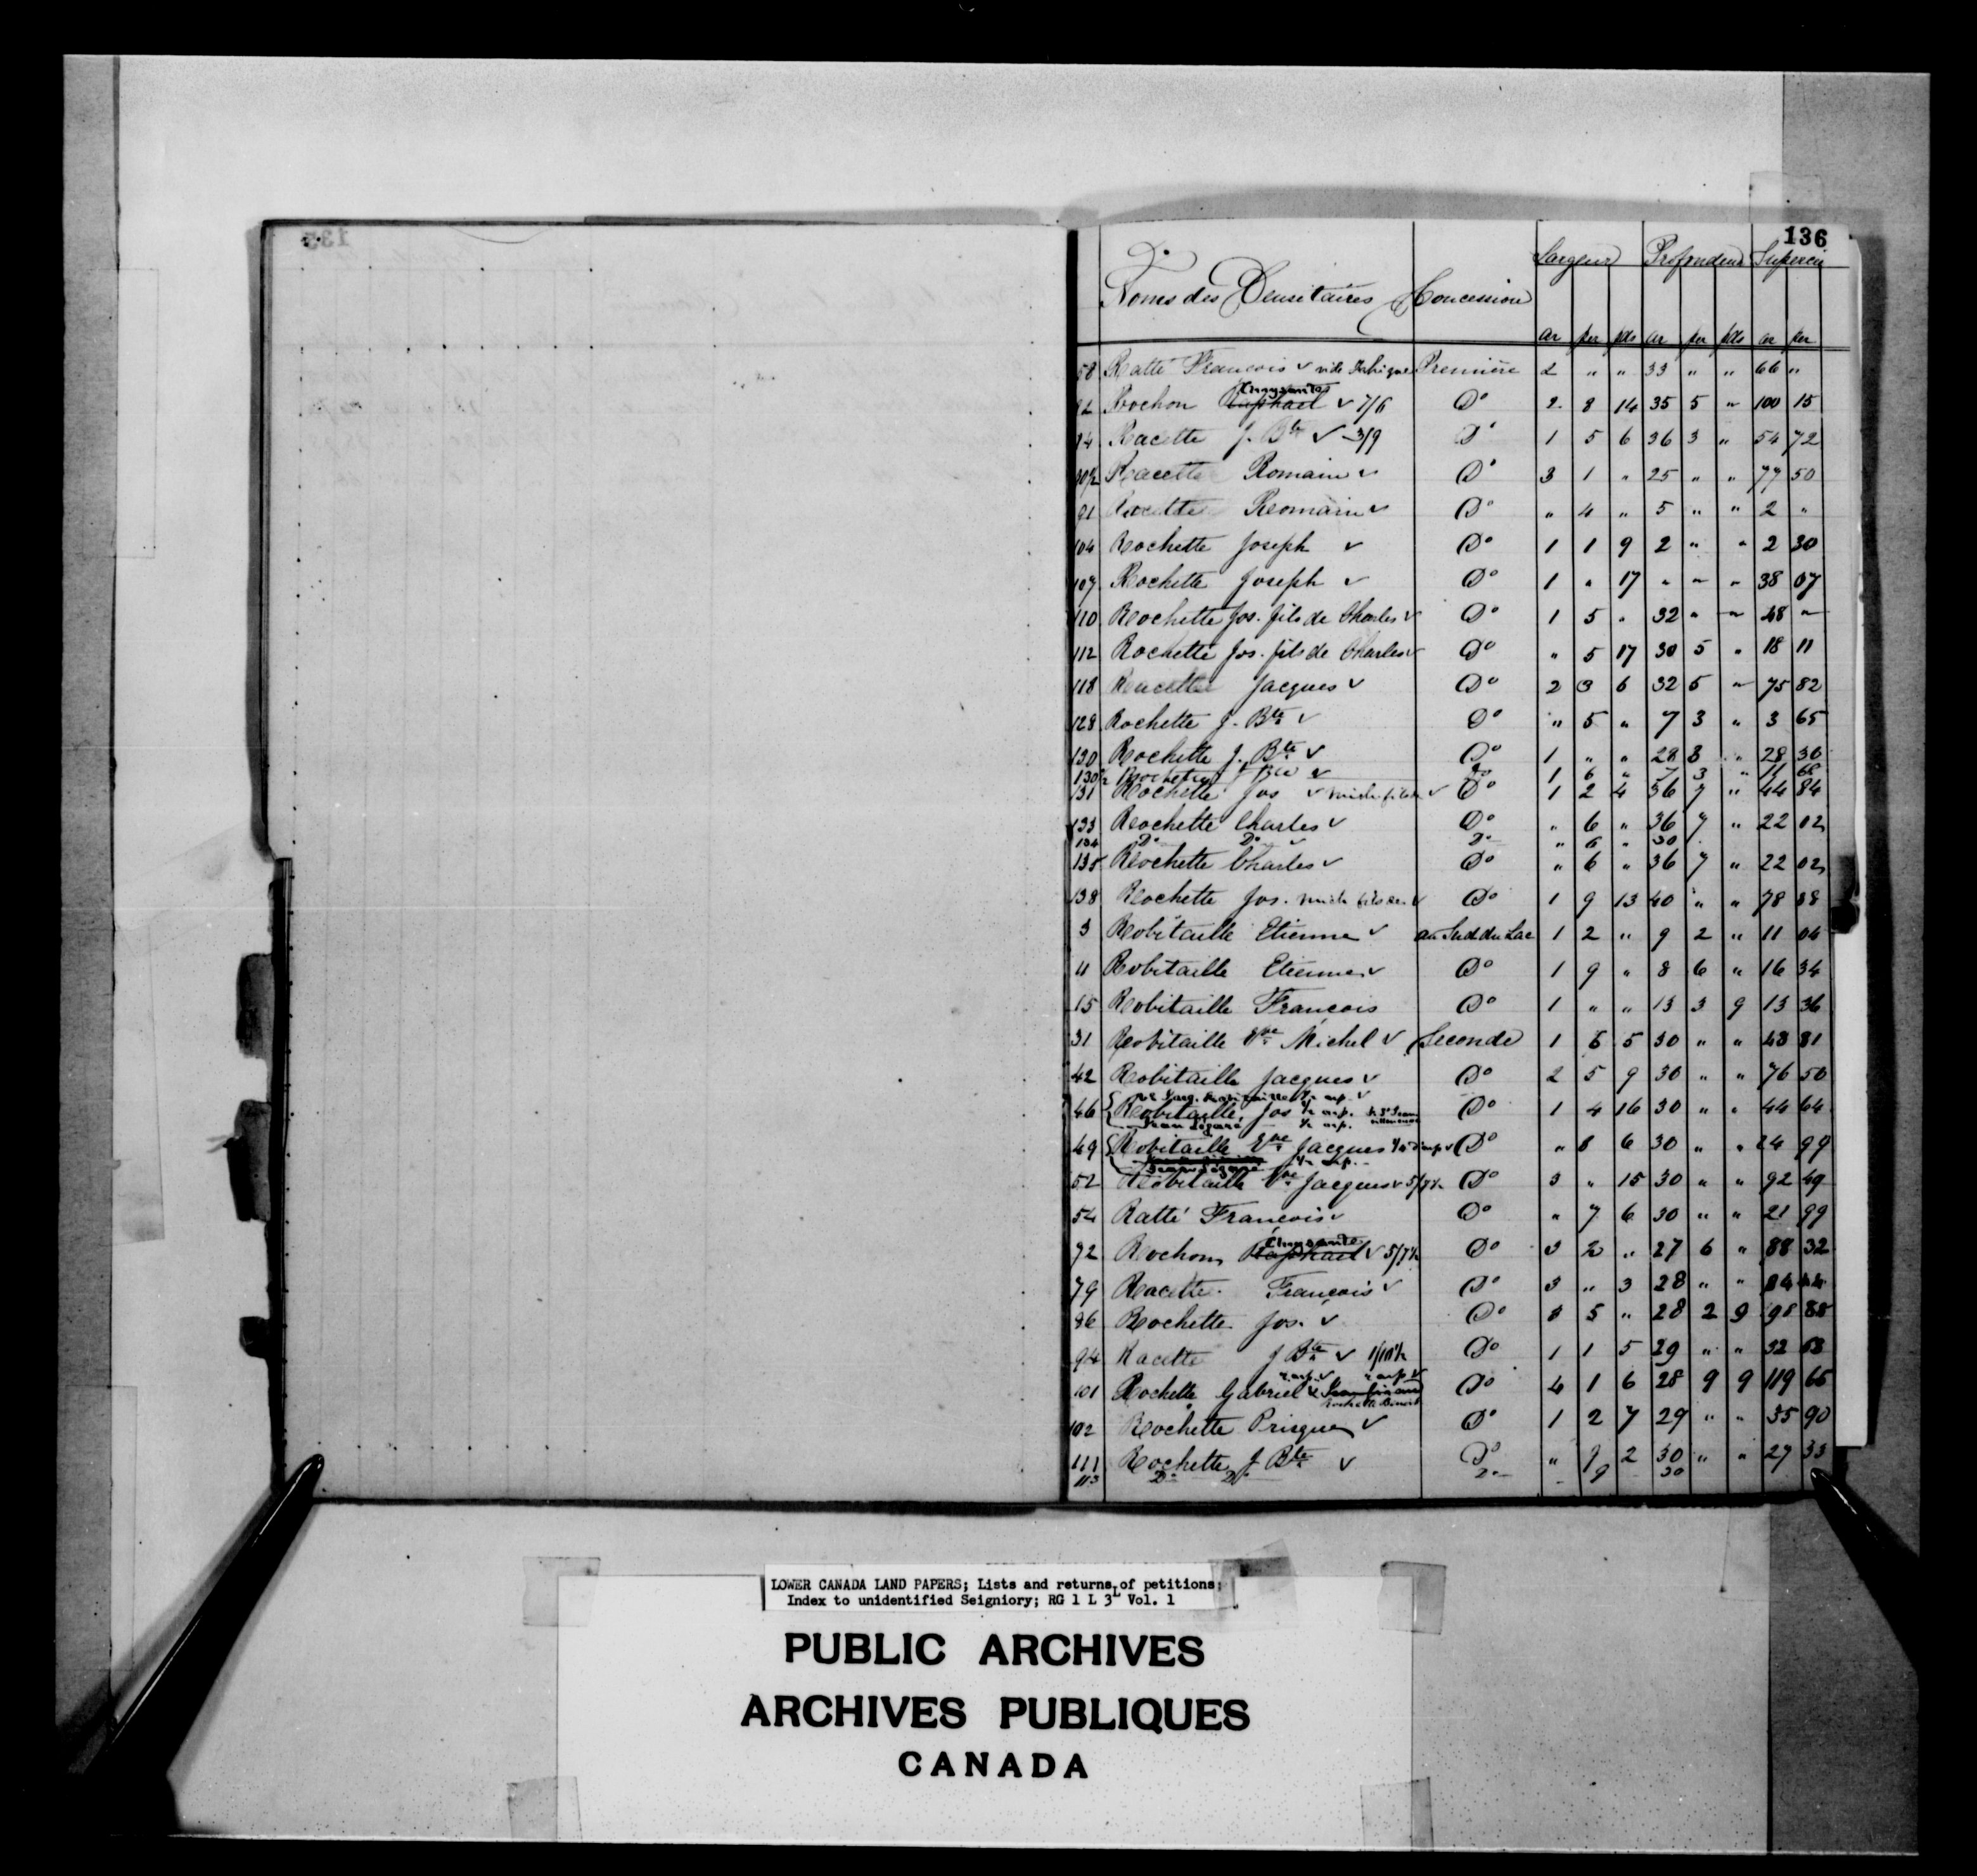 135
136
Noms des Censitaires Concession Largeur Profondeur Superficie
ar per pds ar per pds ar per
58 Ratté Francois ✓ vide Première 2 " " 33 " " 66 "
Rochon Raphael Chrysante ✓ 7/6 Do 2 8 14 35 5 " 100 15
Racette J. Bte ✓ 3/9 Do 1 5 6 36 3 " 54 72
Racette Romain ✓ Do 3 1 " 25 " " 77 50
91 Racette Romain ✓ Do " 4 " 5 " " 2 "
104 Rochette Joseph ✓ Do 1 1 9 2 " " 2 30
107 Rochette Joseph ✓ Do 1 " 17 " " " 38 07
110 Rochette Jos. fils de Charles ✓ Do 1 5 " 32 " " 48 "
112 Rochette Jos. fils de Charles ✓ Do " 5 17 30 5 " 18 11
118 Racette Jacques ✓ Do 2 3 6 32 5 " 75 82
128 Rochette J. Bte ✓ Do " 5 " 7 3 " 3 65
130 Rochette J. Bte ✓ Do 1 " " 28 3 " 28 30
130½ Rochette J Bte ✓ Do 1 6 " 7 3 " 11 68
131 Rochette Jos ✓ ✓ Do 1 2 4 36 7 " 44 84
133 Rochette Charles ✓ Do " 6 " 36 7 " 22 02
134 Do Do ✓ Do " 6 " 30
135 Rochette Charles ✓ Do " 6 " 36 7 " 22 02
138 Rochette Jos. ✓ Do 1 9 13 40 " " 78 88
3 Robitaille Etienne ✓ au Sud du Lac 1 2 " 9 2 " 11 04
11 Robitaille Etienne ✓ Do 1 9 " 8 6 " 16 34
15 Robitaille François Do 1 " " 13 3 9 13 36
31 Robitaille Vve Michel ✓ Seconde 1 6 5 30 " " 48 81
42 Robitaille Jacques ✓ Do 2 5 9 30 " " 76 50
Jacq. Robitaille ½ arp. ✓
46 Robitaille, Jos ½ arp. Do 1 4 16 30 " " 44 64
Jean Légaré ½ arp.
49 Robitaille Vve Jacques ✓ Do " 8 6 30 " " 24 99
Jean Légaré ½ arp.
52 Robitaille Vve Jacques ✓ 5/7½ Do 3 " 15 30 " " 92 49
54 Ratté François ✓ Do " 7 6 30 " " 21 99
72 Rochon Raphael Chrysante ✓ 5/7½ Do 3 2 " 27 6 " 88 32
79 Racette François ✓ Do 3 " 3 28 " " 84 44
86 Rochette Jos. ✓ Do 3 5 " 28 2 9 98 88
94 Racette J Bte ✓ 1/10½ Do 1 1 5 29 " " 32 68
2 arp. ✓ 2 arp. ✓
101 Rochette Gabriel & Do 4 1 6 28 9 9 119 65
Rochette Benoit
102 Rochette Prisque ✓ Do 1 2 7 29 " " 35 90
111 Rochette J Bte ✓ Do " 9 2 30 " " 27 33
113 Do Do Do - 9 30
LOWER CANADA LAND PAPERS; Lists and returns of petitions;
Index to unidentified Seigniory; RG 1 L 3L Vol. 1
PUBLIC ARCHIVES
ARCHIVES PUBLIQUES
CANADA